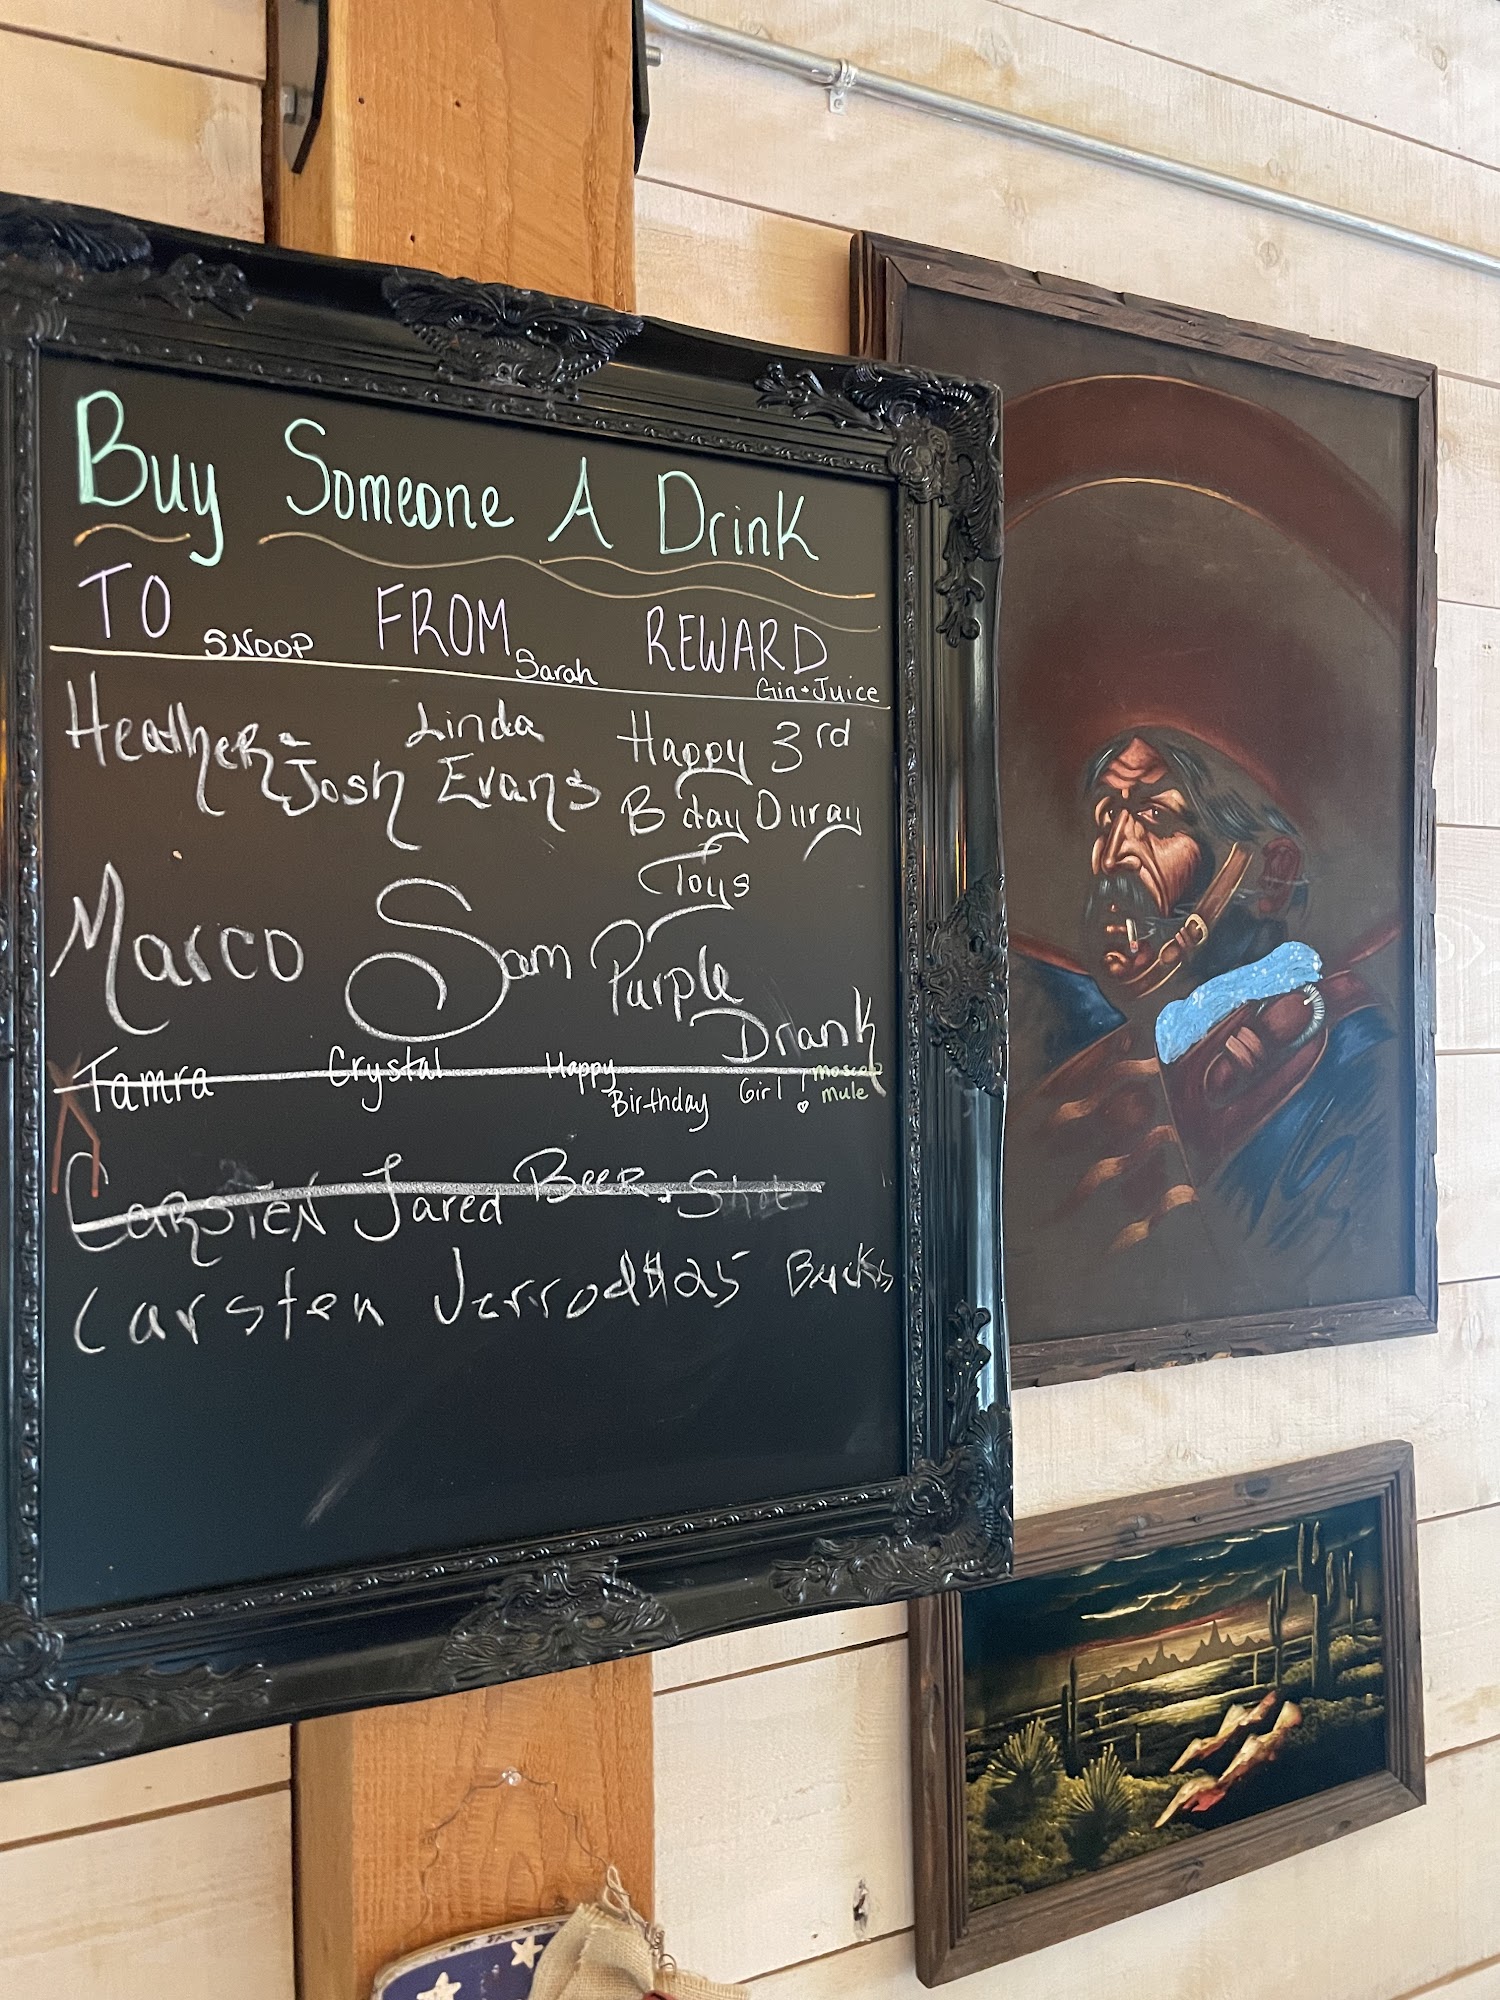 Buy Someone A Drink
TO FROM REWARD
SNOOP Sarah Gin + Juice
Heather - Linda Happy 3rd
Josh Evans B day Ouray
Toys
Marco Sam Purple
Drank
Tamra Crystal Happy Moscow
Birthday Girl! Mule
Carsten Jared Beer + Shot
Carsten Jerrod $25 Bucks